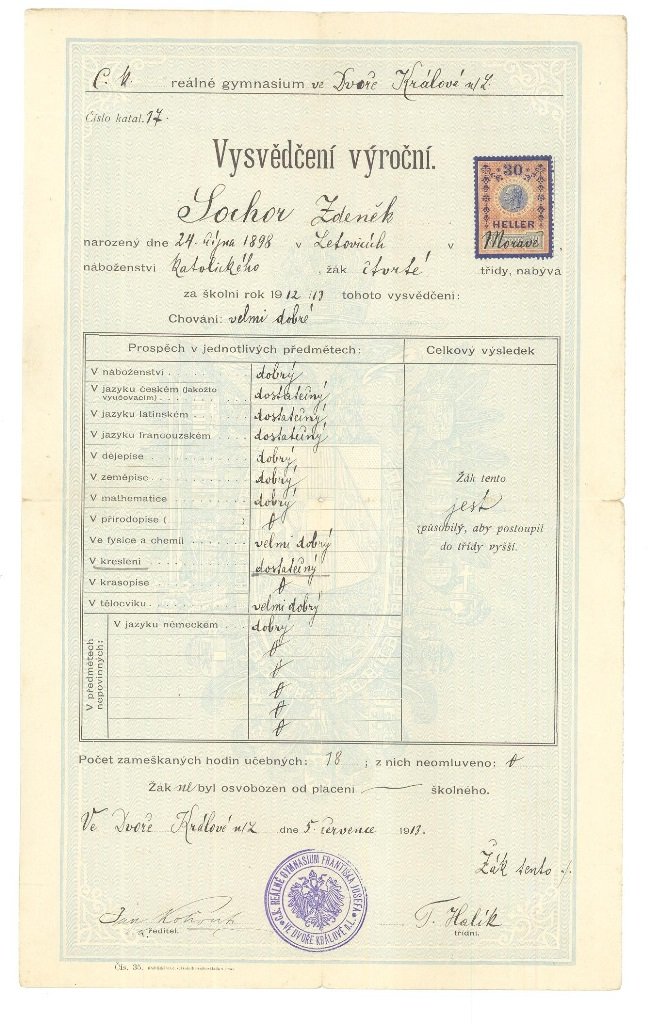 C. K. reálné gymnasium ve Dvoře Králové n/L.
Číslo katal. 17.
Vysvědčení výroční.
30
HELLER
Sochor Zdeněk
narozený dne 24. října 1898 v Letovicích v Moravě
náboženství katolického, žák čtvrté třídy, nabývá
za školní rok 1912/13 tohoto vysvědčení:
Chování: velmi dobré
Prospěch v jednotlivých předmětech: Celkový výsledek
V náboženství dobrý
V jazyku českém (jakožto vyučovacím) dostatečný
V jazyku latinském dostatečný
V jazyku francouzském dostatečný
V dějepise dobrý
V zeměpise dobrý
V mathematice dobrý
V přírodopise ( )
Ve fysice a chemii velmi dobrý
V kreslení dostatečný
V krasopise
V tělocviku velmi dobrý
V předmětech nepovinných:
V jazyku německém dobrý
Žák tento
jest
způsobilý, aby postoupil
do třídy vyšší.
Počet zameškaných hodin učebných: 18; z nich neomluveno: 0
Žák ne byl osvobozen od placení školného.
Ve Dvoře Králové n/L dne 5. července 1913.
Žák tento ./.
C.K. REÁLNÉ GYMNASIUM FRANTIŠKA JOSEFA
VE DVOŘE KRÁLOVÉ n.L.
Jan
ředitel.
F. Halík
třídní.
Čís. 35.